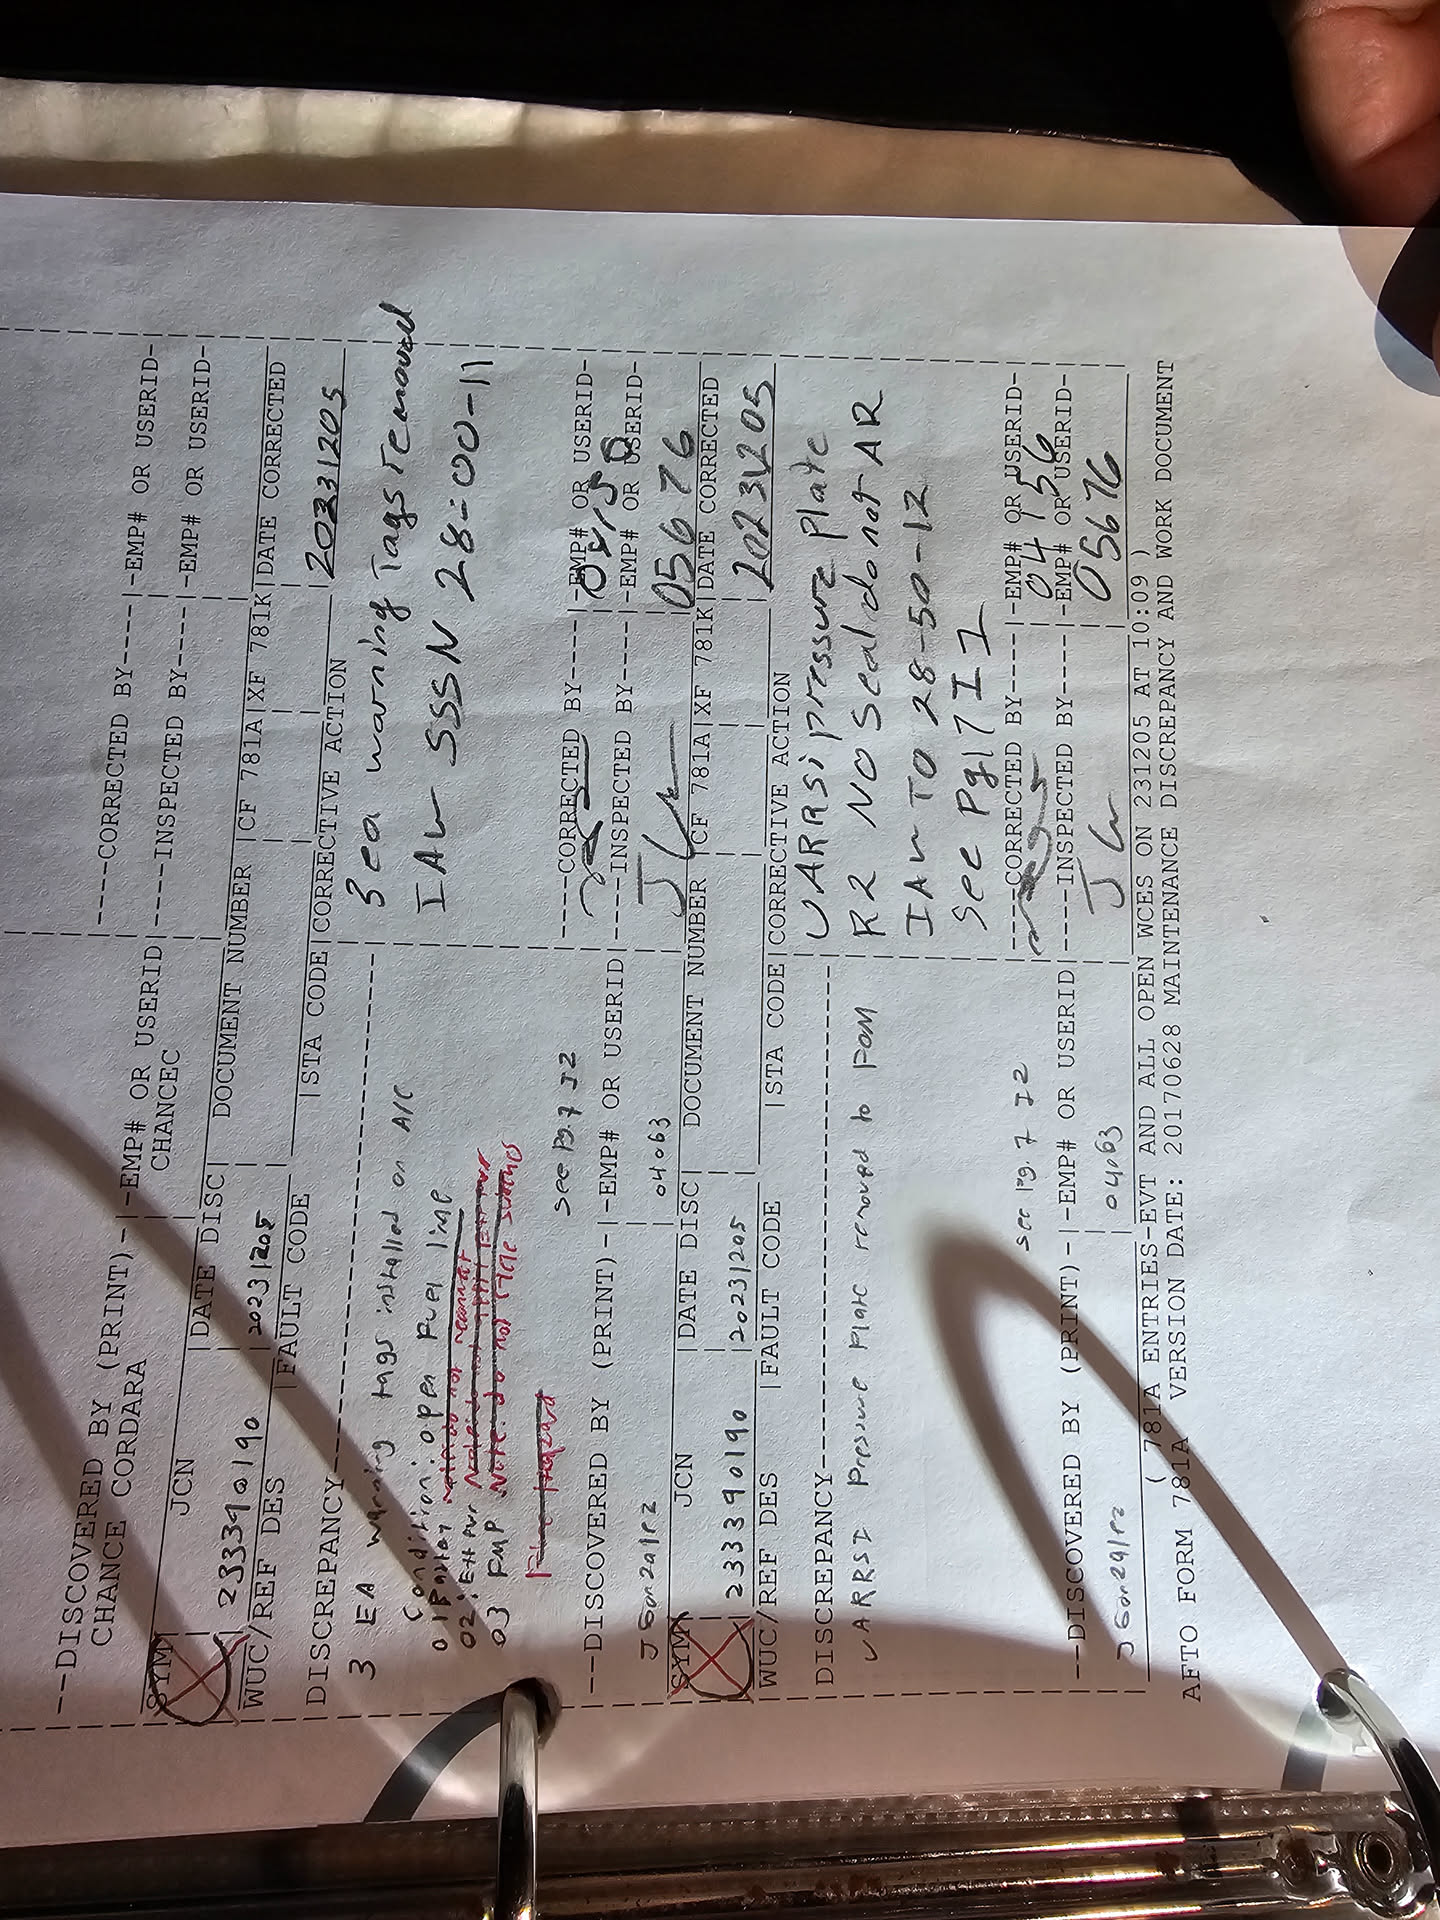 --DISCOVERED BY (PRINT)-|-EMP# OR USERID |----CORRECTED BY-----|-EMP# OR USERID-
CHANCE CORDARA CHANCEC |----INSPECTED BY-----|-EMP# OR USERID-
SYM JCN |DATE DISC| DOCUMENT NUMBER |CF 781A|XF 781K|DATE CORRECTED
233390190 20231205 20231205
WUC/REF DES |FAULT CODE |STA CODE|CORRECTIVE ACTION
DISCREPANCY
3 EA warning tags installed on A/C
Condition: open fuel line
02:
03 FMP Note: do not
see pg. 7 I2
3 ea warning Tags removed
IAW SSSN 28-00-11
--DISCOVERED BY (PRINT)-|-EMP# OR USERID|----CORRECTED BY-----|-EMP# OR USERID-
J Gonzalez 04063 |----INSPECTED BY-----|-EMP# OR USERID-
05676
SYM JCN |DATE DISC| DOCUMENT NUMBER |CF 781A|XF 781K|DATE CORRECTED
233390190 20231205 20231205
WUC/REF DES |FAULT CODE |STA CODE|CORRECTIVE ACTION
DISCREPANCY
UARRSI Pressure Plate removed to FOM
see pg. 7 I2
UARRSI pressure plate
R2 NO Seal do not AR
IAW TO 28-50-12
See Pg 17 I1
--DISCOVERED BY (PRINT)-|-EMP# OR USERID|----CORRECTED BY-----|-EMP# OR USERID-
04156
J Gonzalez 04063 |----INSPECTED BY-----|-EMP# OR USERID-
05676
( 781A ENTRIES-EVT AND ALL OPEN WCES ON 231205 AT 10:09 )
AFTO FORM 781A VERSION DATE: 20170628 MAINTENANCE DISCREPANCY AND WORK DOCUMENT